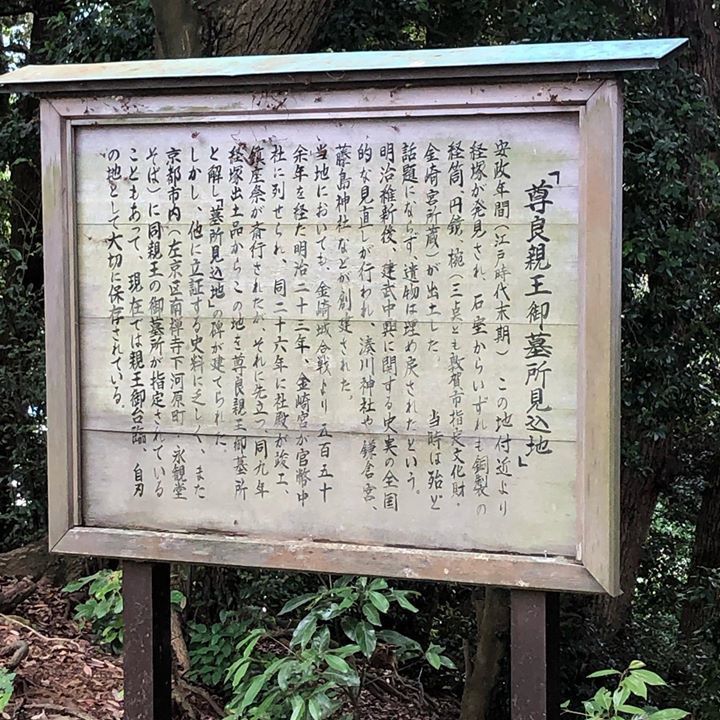 「尊良親王御墓所見込地」
安政年間（江戸時代末期）この地付近より
経塚が発見され、石室からいずれも銅製の
経筒、円鏡、椀（三点とも敦賀市指定文化財・
金崎宮所蔵）が出土した。　当時は殆ど
話題にならず、遺物は埋め戻されたという。
明治維新後、建武中興に関する史実の全国
的な見直しが行われ、湊川神社や鎌倉宮、
藤島神社などが創建された。
当地においても、金崎城合戦より五百五十
余年を経た明治二十三年、金崎宮が官幣中
社に列せられ、同二十六年に社殿が竣工、
鎮座祭が斎行されたが、それに先立つ同九年
経塚出土品からこの地を尊良親王御墓所
と解し「墓所見込地」の碑が建てられた。
しかし、他に立証する史料に乏しく、また
京都市内（左京区南禅寺下河原町・永観堂
そば）に同親王の御墓所が指定されている
こともあって、現在では親王御台臨、自刃
の地として大切に保存されている。